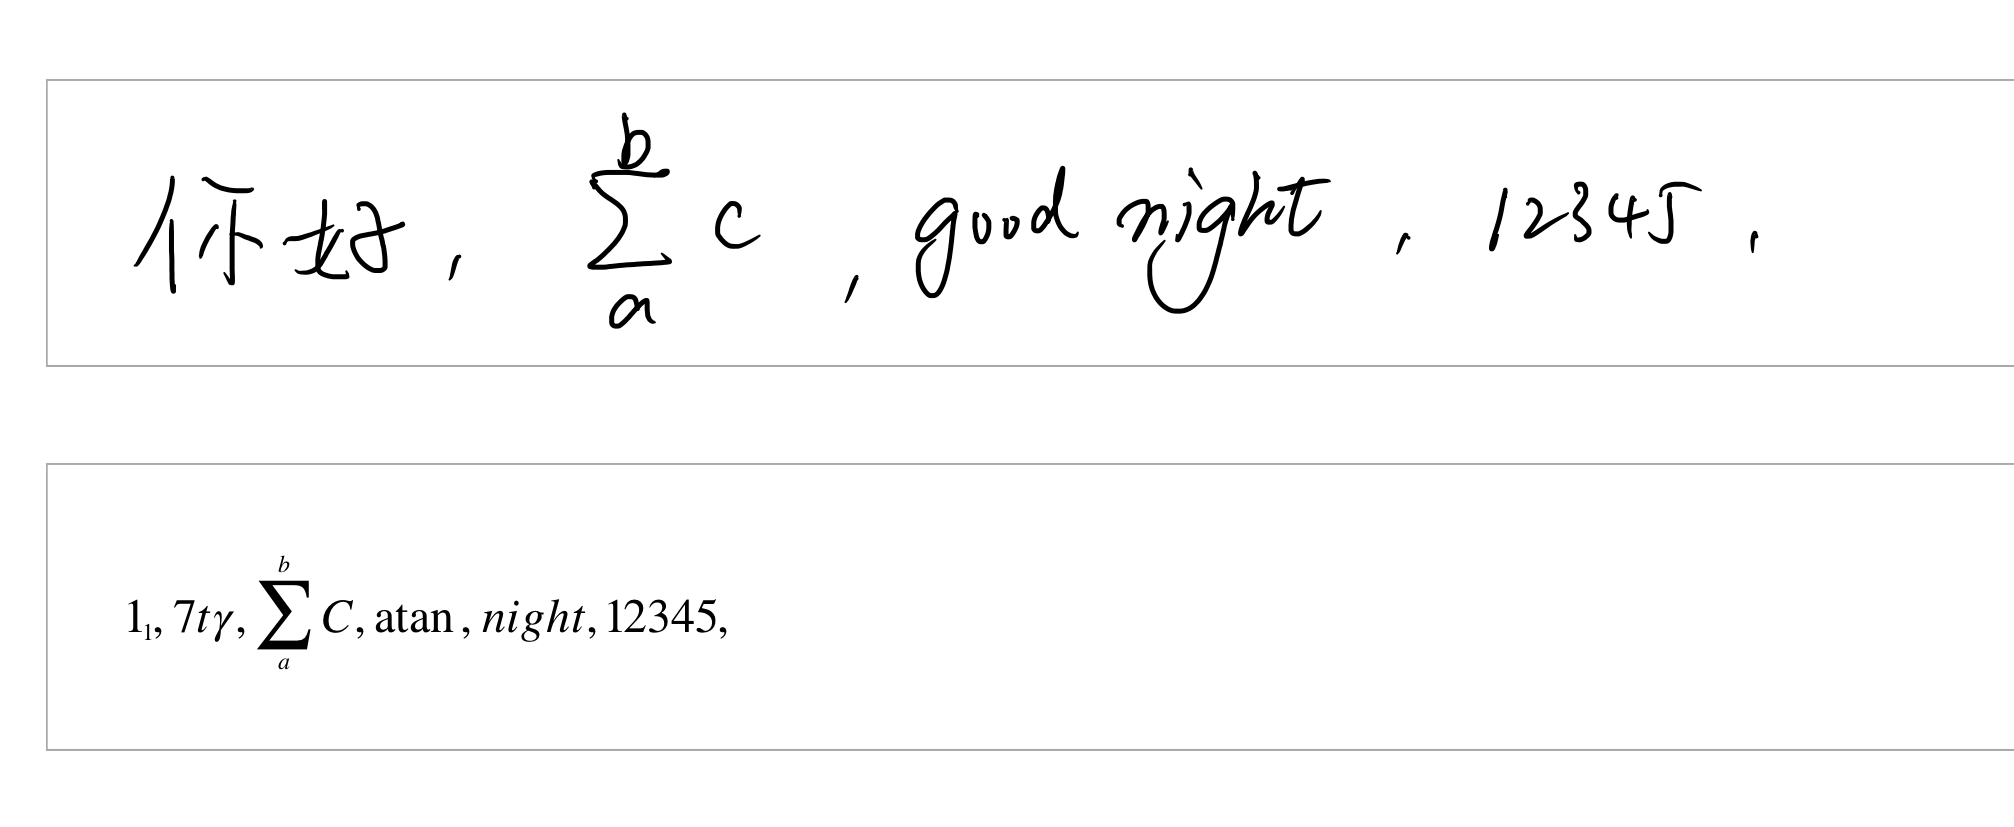 你好, \sum_{a}^{b} c, good night, 12345,
1_1, 7tγ, \sum_{a}^{b} C, atan, night, 12345,